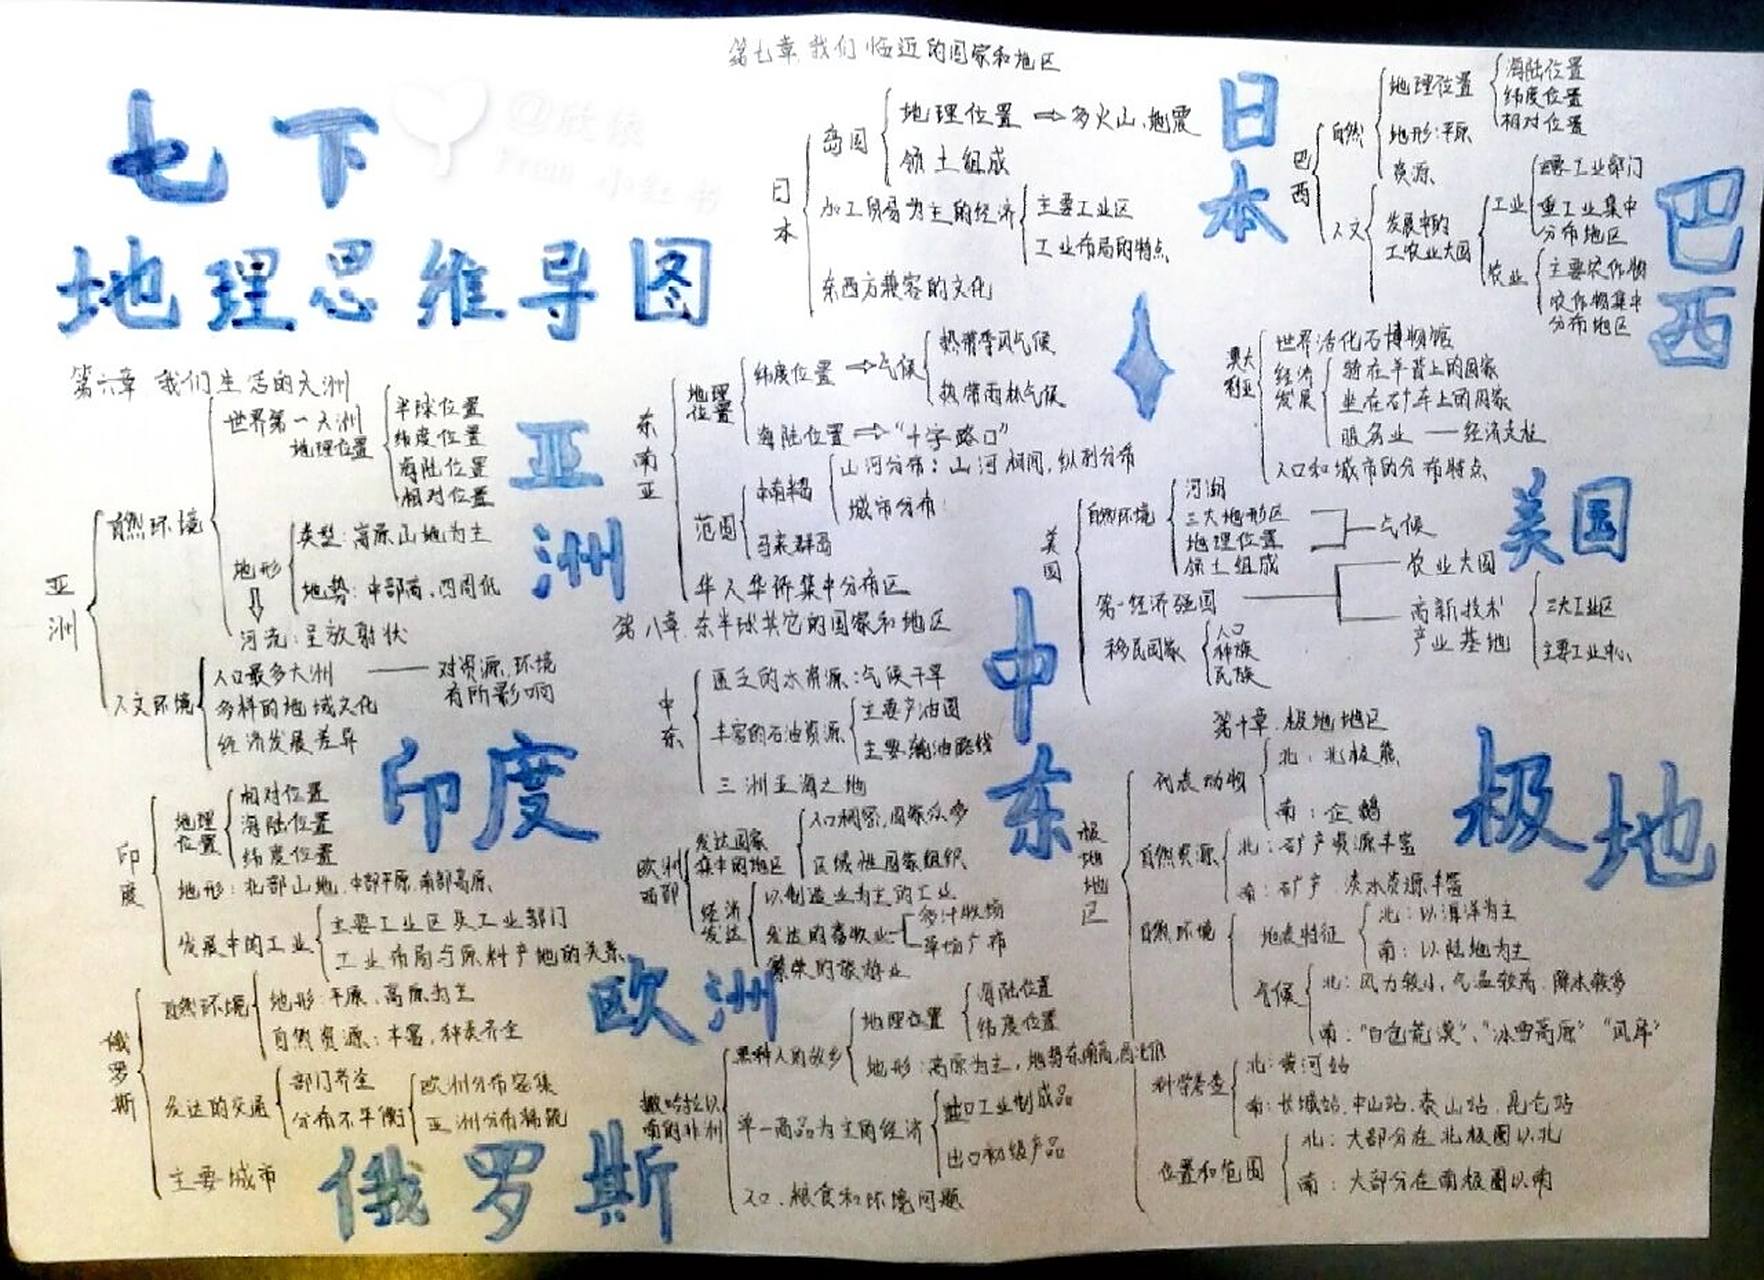 七下
地理思维导图
第六章 我们生活的大洲
亚洲
亚洲
自然环境
世界第一大洲
地理位置
半球位置
纬度位置
海陆位置
相对位置
地形
类型:高原山地为主
地势:中部高,四周低
河流:呈放射状
人文环境
人口最多大洲 —— 对资源,环境
有所影响
多样的地域文化
经济发展差异
第七章 我们临近的国家和地区
日本
日本
岛国
地理位置 ⇒ 多火山、地震
领土组成
加工贸易为主的经济
主要工业区
工业布局的特点
东西方兼容的文化
东南亚
地理位置
纬度位置 ⇒ 气候
热带季风气候
热带雨林气候
海陆位置 ⇒ "十字路口"
范围
中南半岛
山河分布:山河相间,纵列分布
城市分布
马来群岛
华人华侨集中分布区
印度
印度
地理位置
相对位置
海陆位置
纬度位置
地形:北部山地,中部平原,南部高原
发展中的工业
主要工业区及工业部门
工业布局与原料产地的关系
俄罗斯
俄罗斯
自然环境
地形:平原、高原为主
自然资源:丰富,种类齐全
发达的交通
部门齐全
分布不平衡
欧洲分布密集
亚洲分布稀疏
主要城市
第八章 东半球其它的国家和地区
中东
中东
匮乏的水资源:气候干旱
丰富的石油资源
主要产油国
主要输油路线
三洲五海之地
欧洲
欧洲西部
发达国家
集中的地区
人口稠密,国家众多
区域性国家组织
经济发达
以制造业为主的工业
发达的畜牧业
多汁牧场
草场广布
繁荣的旅游业
撒哈拉以
南的非洲
黑种人的故乡
地理位置
海陆位置
纬度位置
地形:高原为主,地势东南高,西北低
单一商品为主的经济
进口工业制成品
出口初级产品
人口、粮食和环境问题
澳大利亚
世界活化石博物馆
经济发展
骑在羊背上的国家
坐在矿车上的国家
服务业 —— 经济支柱
人口和城市的分布特点
美国
美国
自然环境
河湖
三大地形区
地理位置
领土组成
气候
第一经济强国
农业大国
高新技术
产业基地
三大工业区
主要工业中心
移民国家
人口
种族
民族
巴西
巴西
自然
地理位置
海陆位置
纬度位置
相对位置
地形:平原
资源
人文
发展中的
工农业大国
工业
主要工业部门
重工业集中
分布地区
农业
主要农作物
农作物集中
分布地区
第十章 极地地区
极地
极地地区
代表动物
北:北极熊
南:企鹅
自然资源
北:矿产资源丰富
南:矿产、淡水资源丰富
自然环境
地表特征
北:以海洋为主
南:以陆地为主
气候
北:风力较小,气温较高,降水较多
南:"白色荒漠"、"冰雪高原" "风库"
科学考查
北:黄河站
南:长城站.中山站.泰山站.昆仑站
位置和范围
北:大部分在北极圈以北
南:大部分在南极圈以南